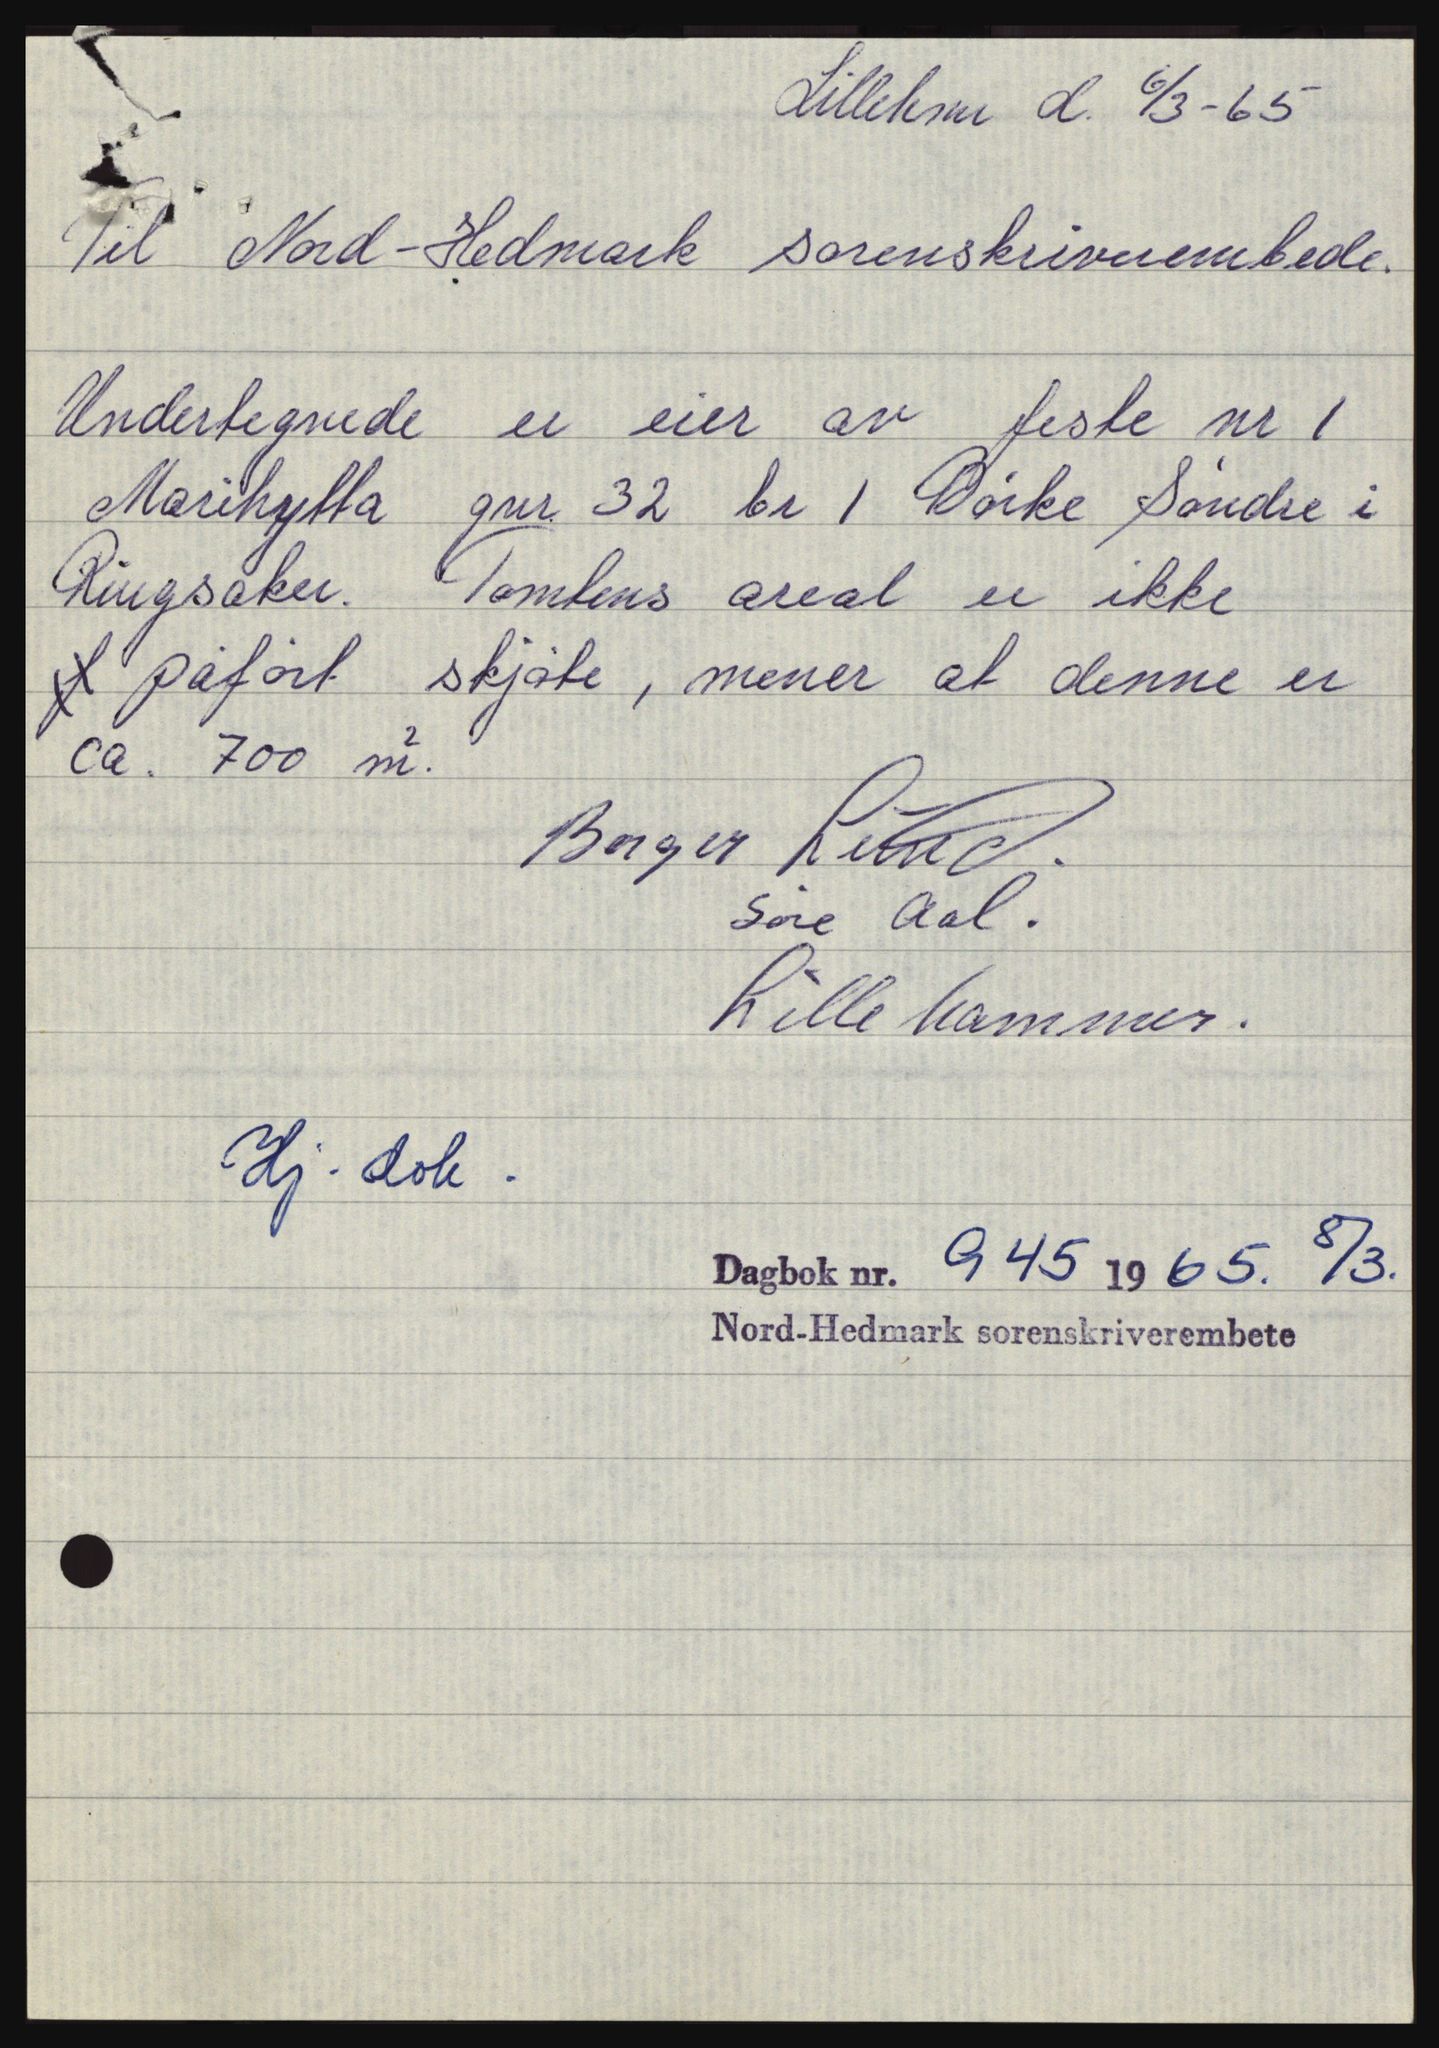 Lillehmr d. 6/3-65
Til Nord-Hedmark sorenskriverembede.
Undertegnede er eier av feste nr 1
Marihytta gnr. 32 br 1 Dørke Søndre i
Ringsaker. Tomtens areal er ikke
påført skjøte, mener at denne er
ca. 700 m².
Borger Lund.
Søre Aal.
Lillehammer.
Hj. dok.
Dagbok nr. 945 1965. 8/3.
Nord-Hedmark sorenskriverembete